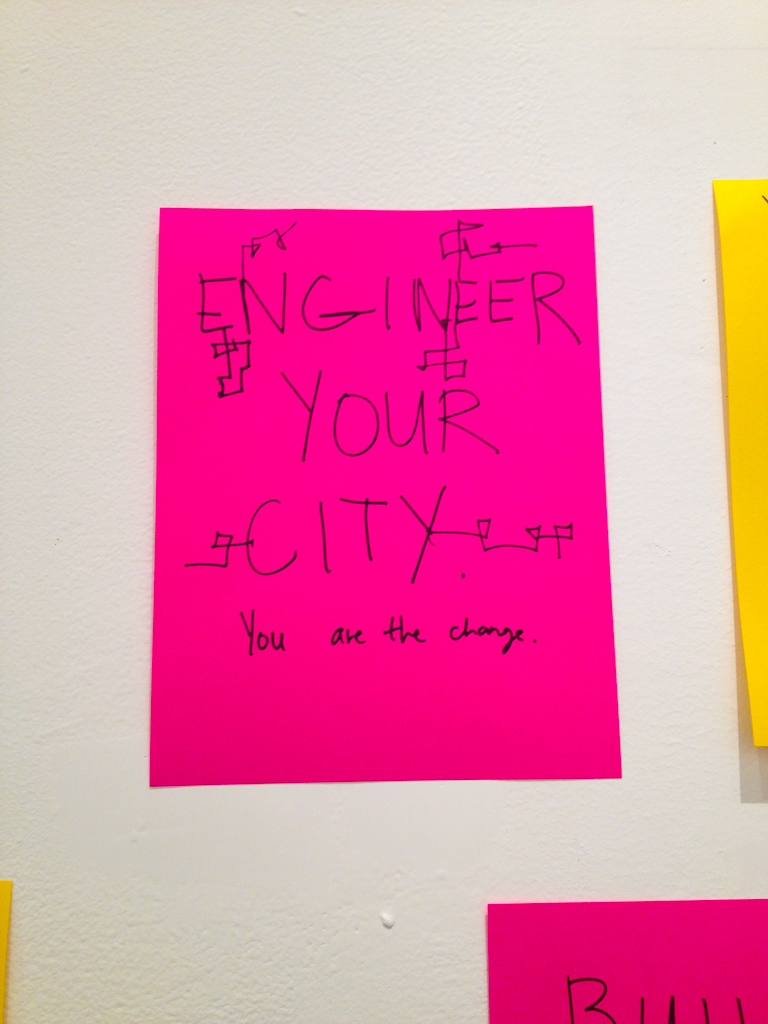 ENGINEER
YOUR
CITY.
You are the change.